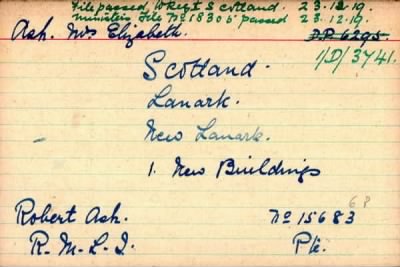 File passed, to Regt Scotland. 23.12.19.
Ministers File No 18305 passed 23.12.19.
Ash. Mrs Elizabeth. D.P. 6295
1/D/3741.
Scotland.
Lanark.
New Lanark.
1. New Buildings
68
Robert Ash. No 15683
R. M. L. I. Pte.